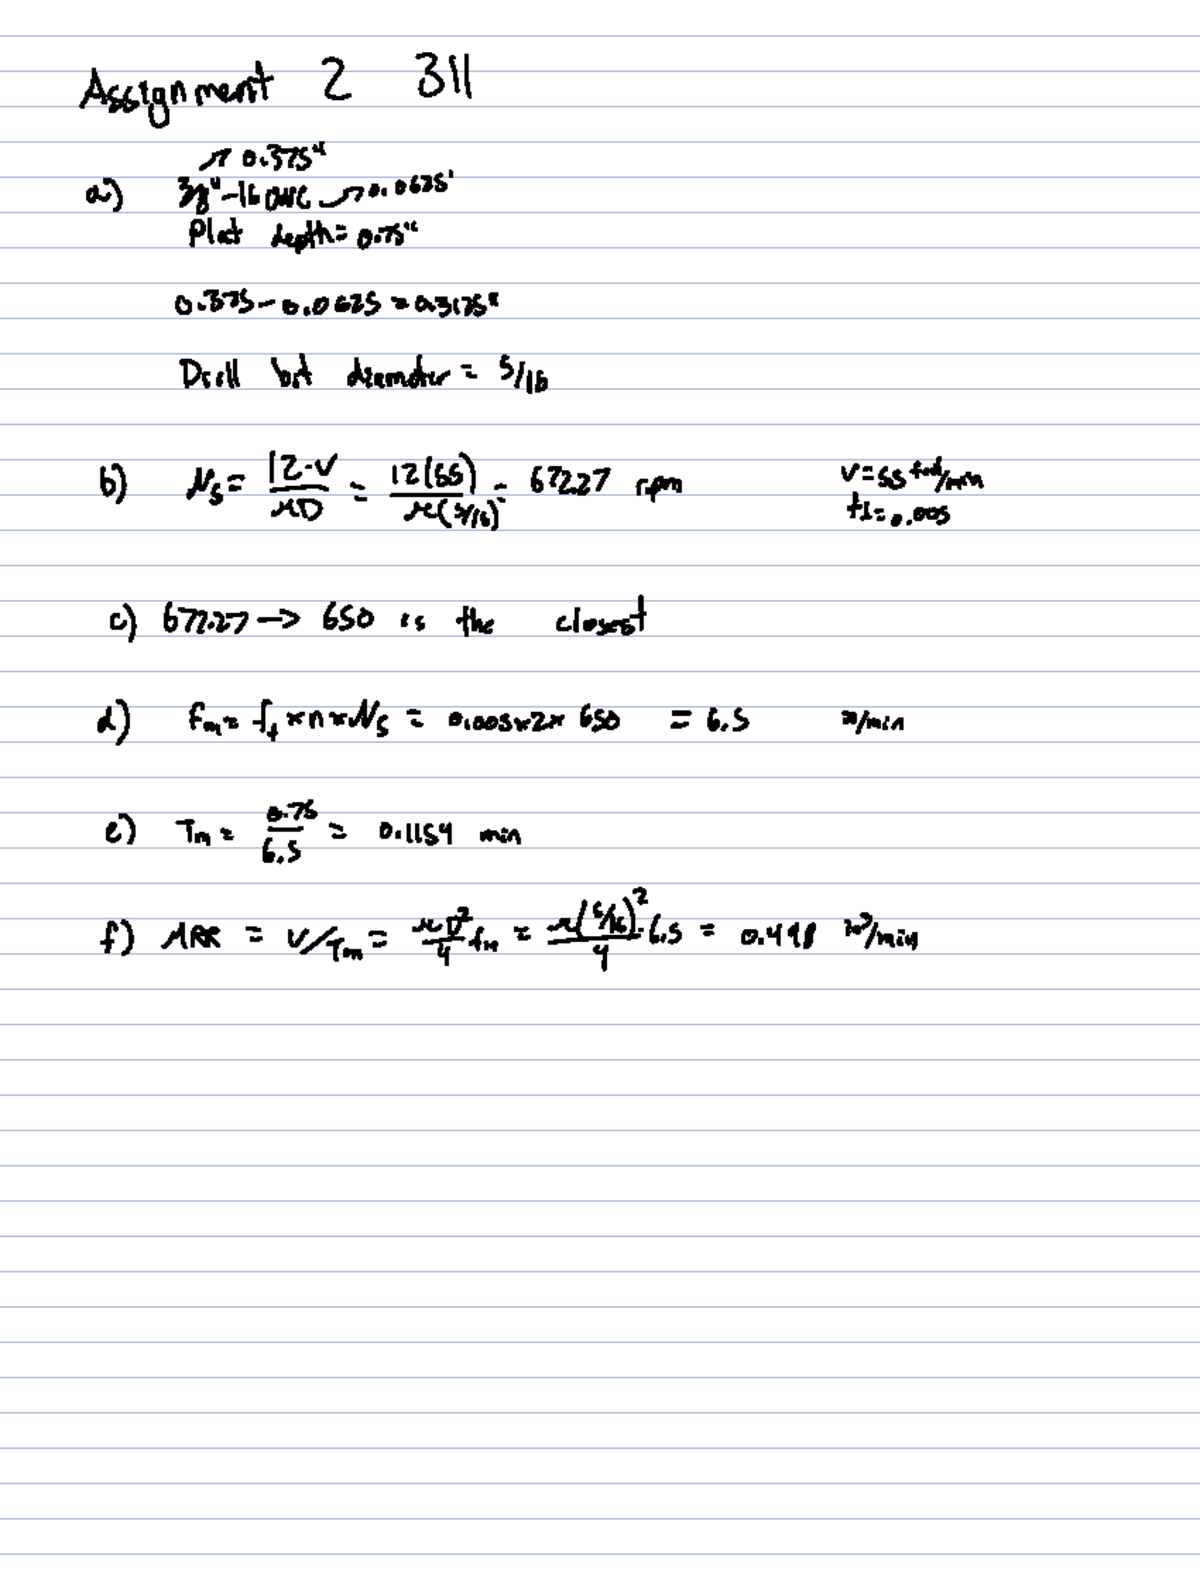 Assignment 2 311
↗ 0.375"
a) 3/8"-16 UNC → 0.0625"
Plat depth = 0.75"
0.375 - 0.0625 = 0.3125"
Drill bit diameter = 5/16
b) Ns = 12·V/πD = 12(55)/π(5/16) = 672.27 rpm
V = 55 feet/min
ft = 0.005
c) 672.27 → 650 is the closest
d) fm = ft × n × Ns = 0.005 × 2 × 650 = 6.5 in/min
e) Tm = 0.75/6.5 = 0.1154 min
f) MRR = V/Tm = πD²/4 fm = π(5/16)²/4 · 6.5 = 0.498 in³/min